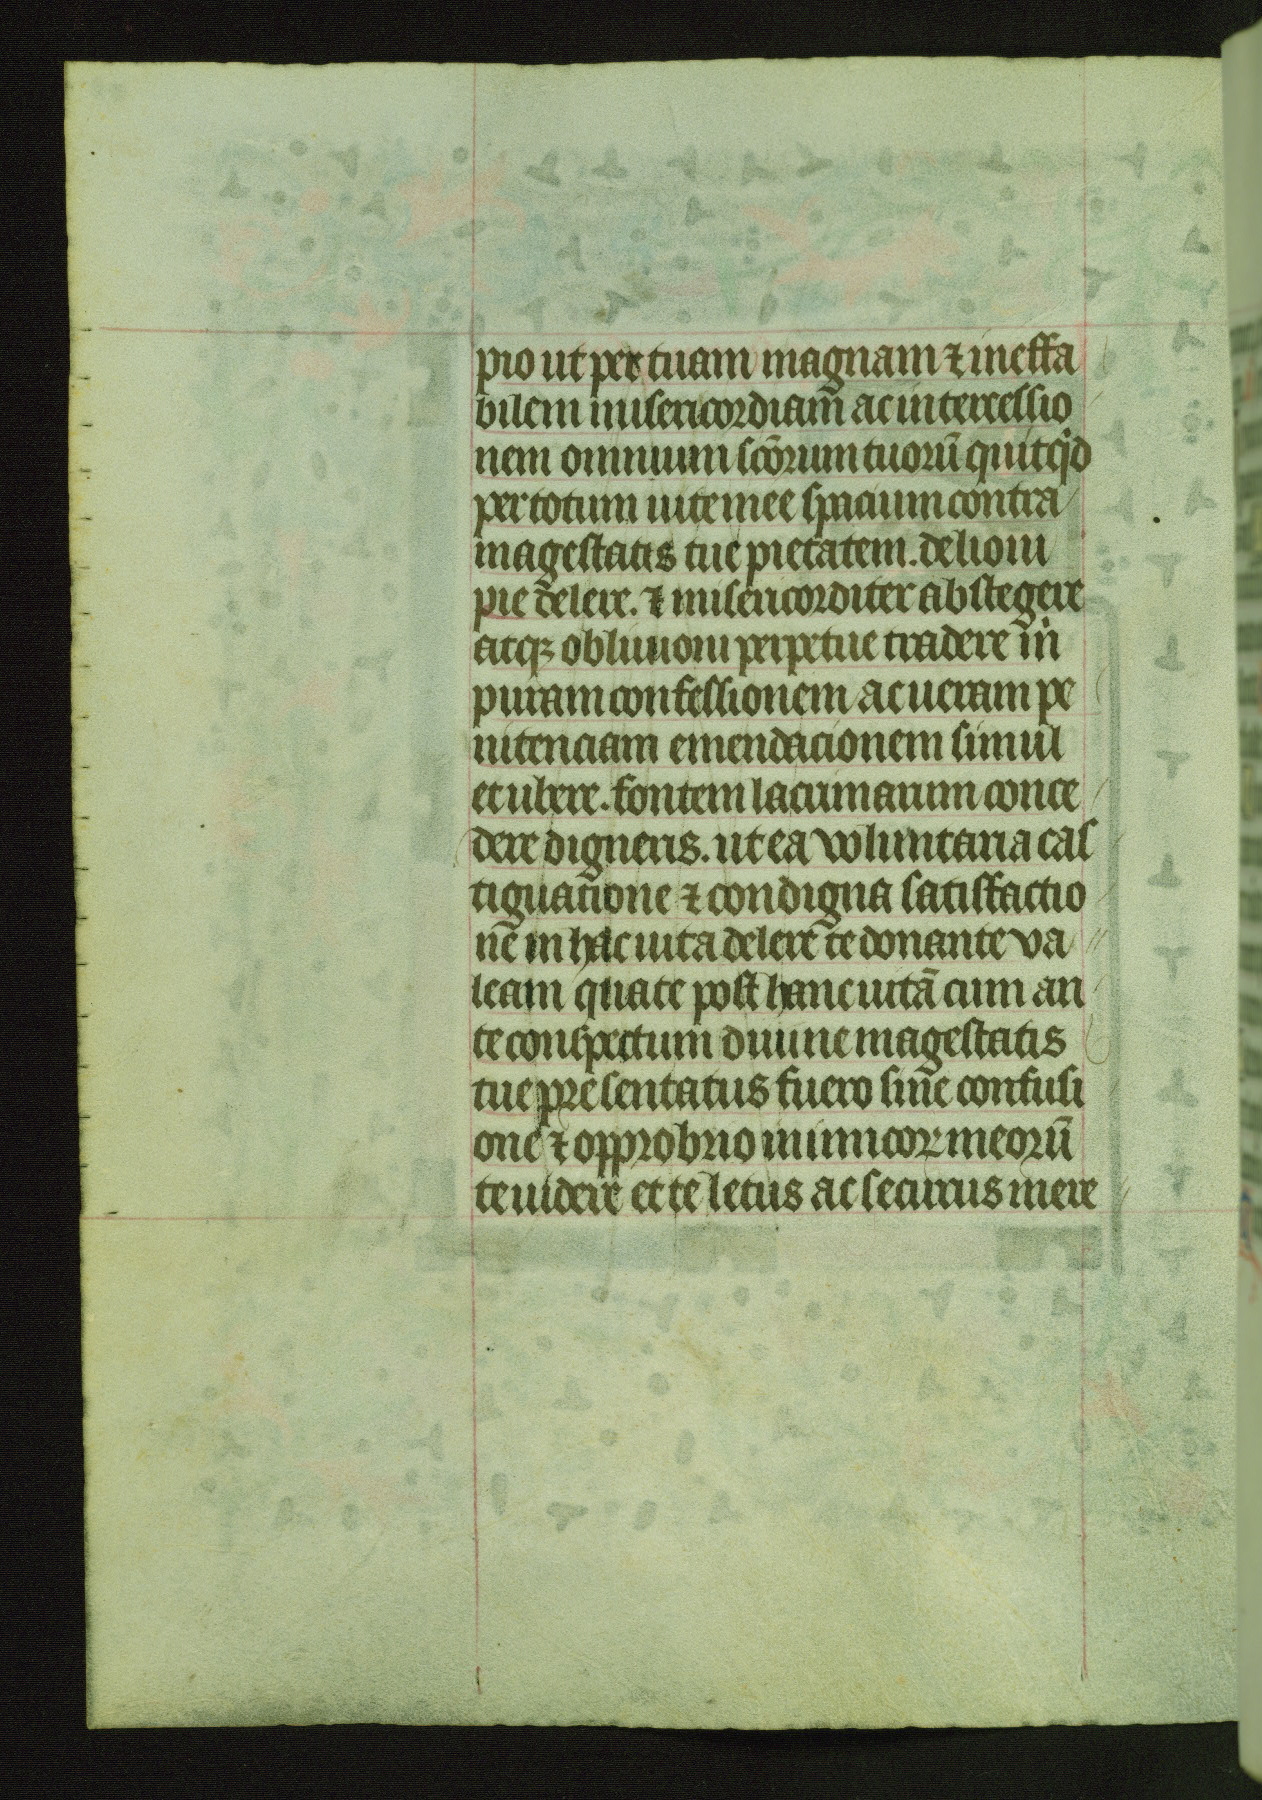 pio ut per tuam magnam ⁊ ineffa
bilem misericordiam̄ ac intercessio
nem omnium sc̄orum tuorū quitqͥd
per totum uite mee spacium contra
magestatis tue pietatem. delioui
pie delere. ⁊ misericorditer abstegere
atqꝫ obliuioni perpetue tradere m̄i
puram confessionem ac ueram pe
nitenciam emendacionem simul
et ubere. fontem lacrimarum conce
dere digneris. ut ea voluntaria cas
tiguatione ⁊ condigna satisfactio
nē in hac uita delere te donante va
leam quate post hanc uitā cum an
te conspectum diuine magestatis
tue presentatus fuero sine confusi
one ⁊ opprobrio inimicoꝝ meorū
te uidere et te letus ac securus mere